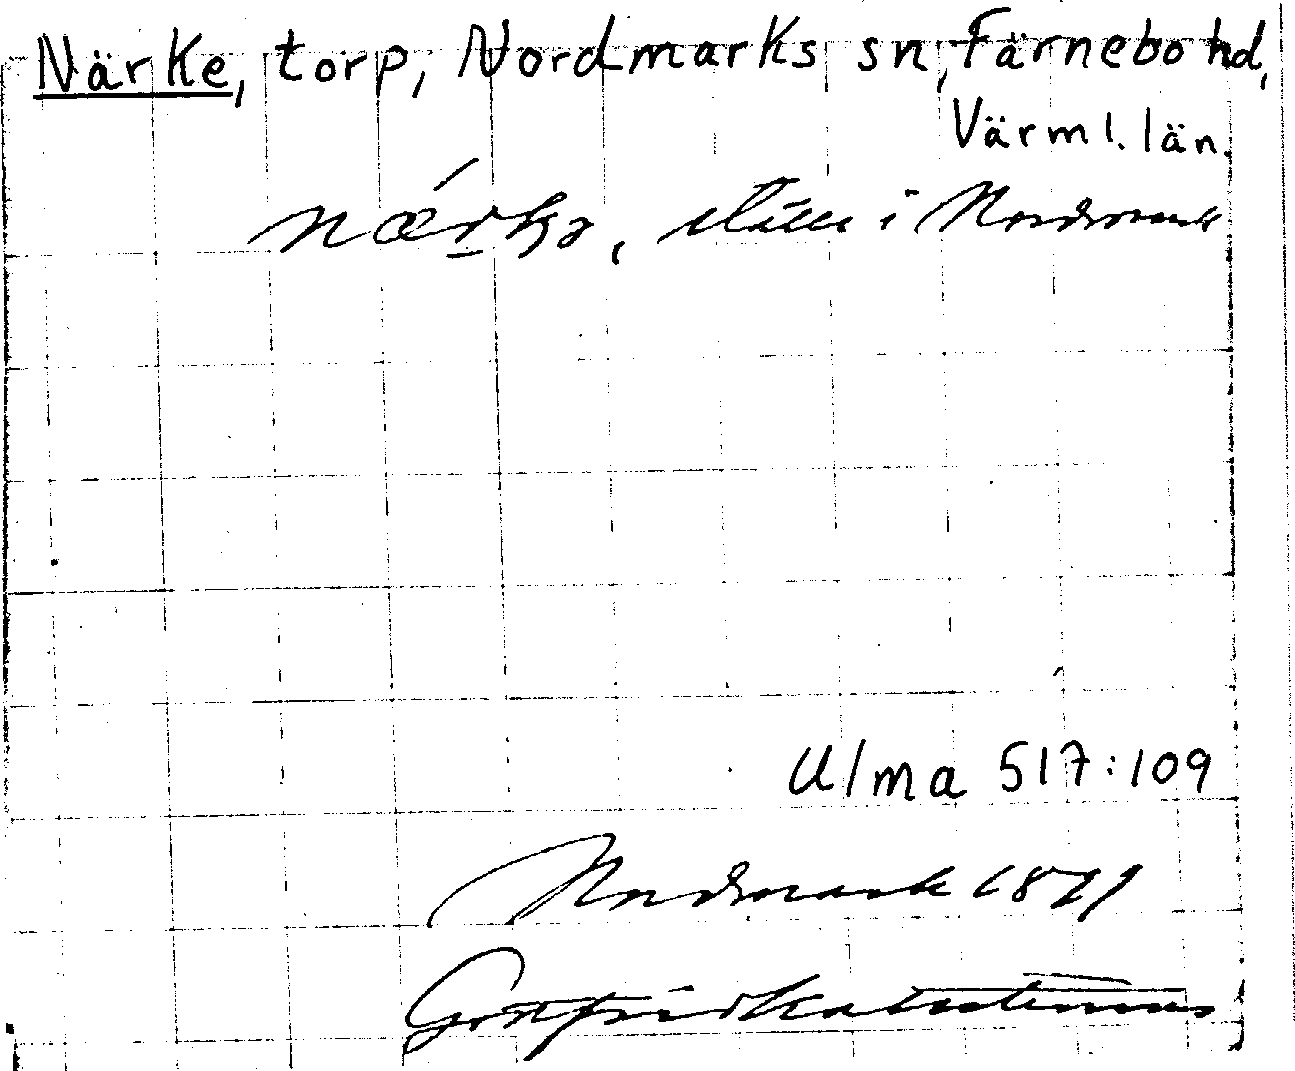 Närke, torp, Nordmarks sn, Färnebo hd,
Värml. län.
nærkə, ställe i Nordmark
Ulma 517:109
Nordmark 1879
Gottfrid Kallstenius